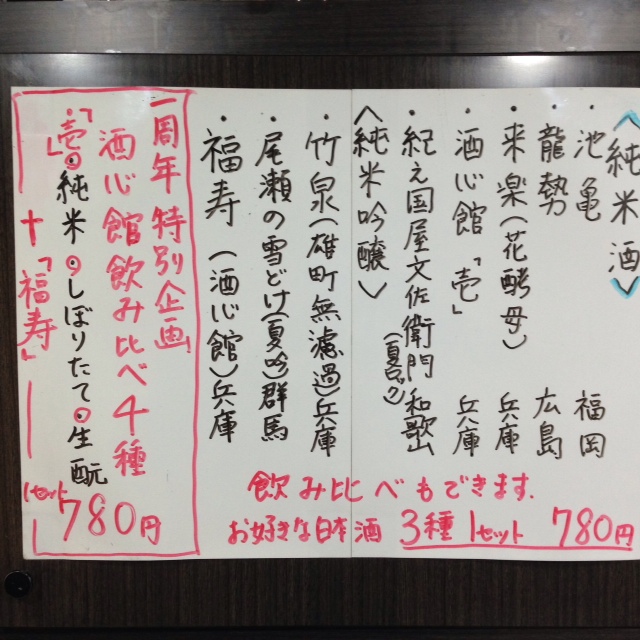 〈純米酒〉
・池亀 福岡
・龍勢 広島
・来楽(花酵母) 兵庫
・酒心館「壱」 兵庫
・紀之国屋文佐衛門 和歌山
〈純米吟醸〉
・竹泉(雄町無濾過)兵庫
・尾瀬の雪どけ(夏吟)群馬
・福寿(酒心館)兵庫
飲み比べもできます.
お好きな日本酒 3種1セット 780円
一周年特別企画
酒心館飲み比べ4種
「壱」・純米・しぼりたて・生酛
+「福寿」
1セット 780円